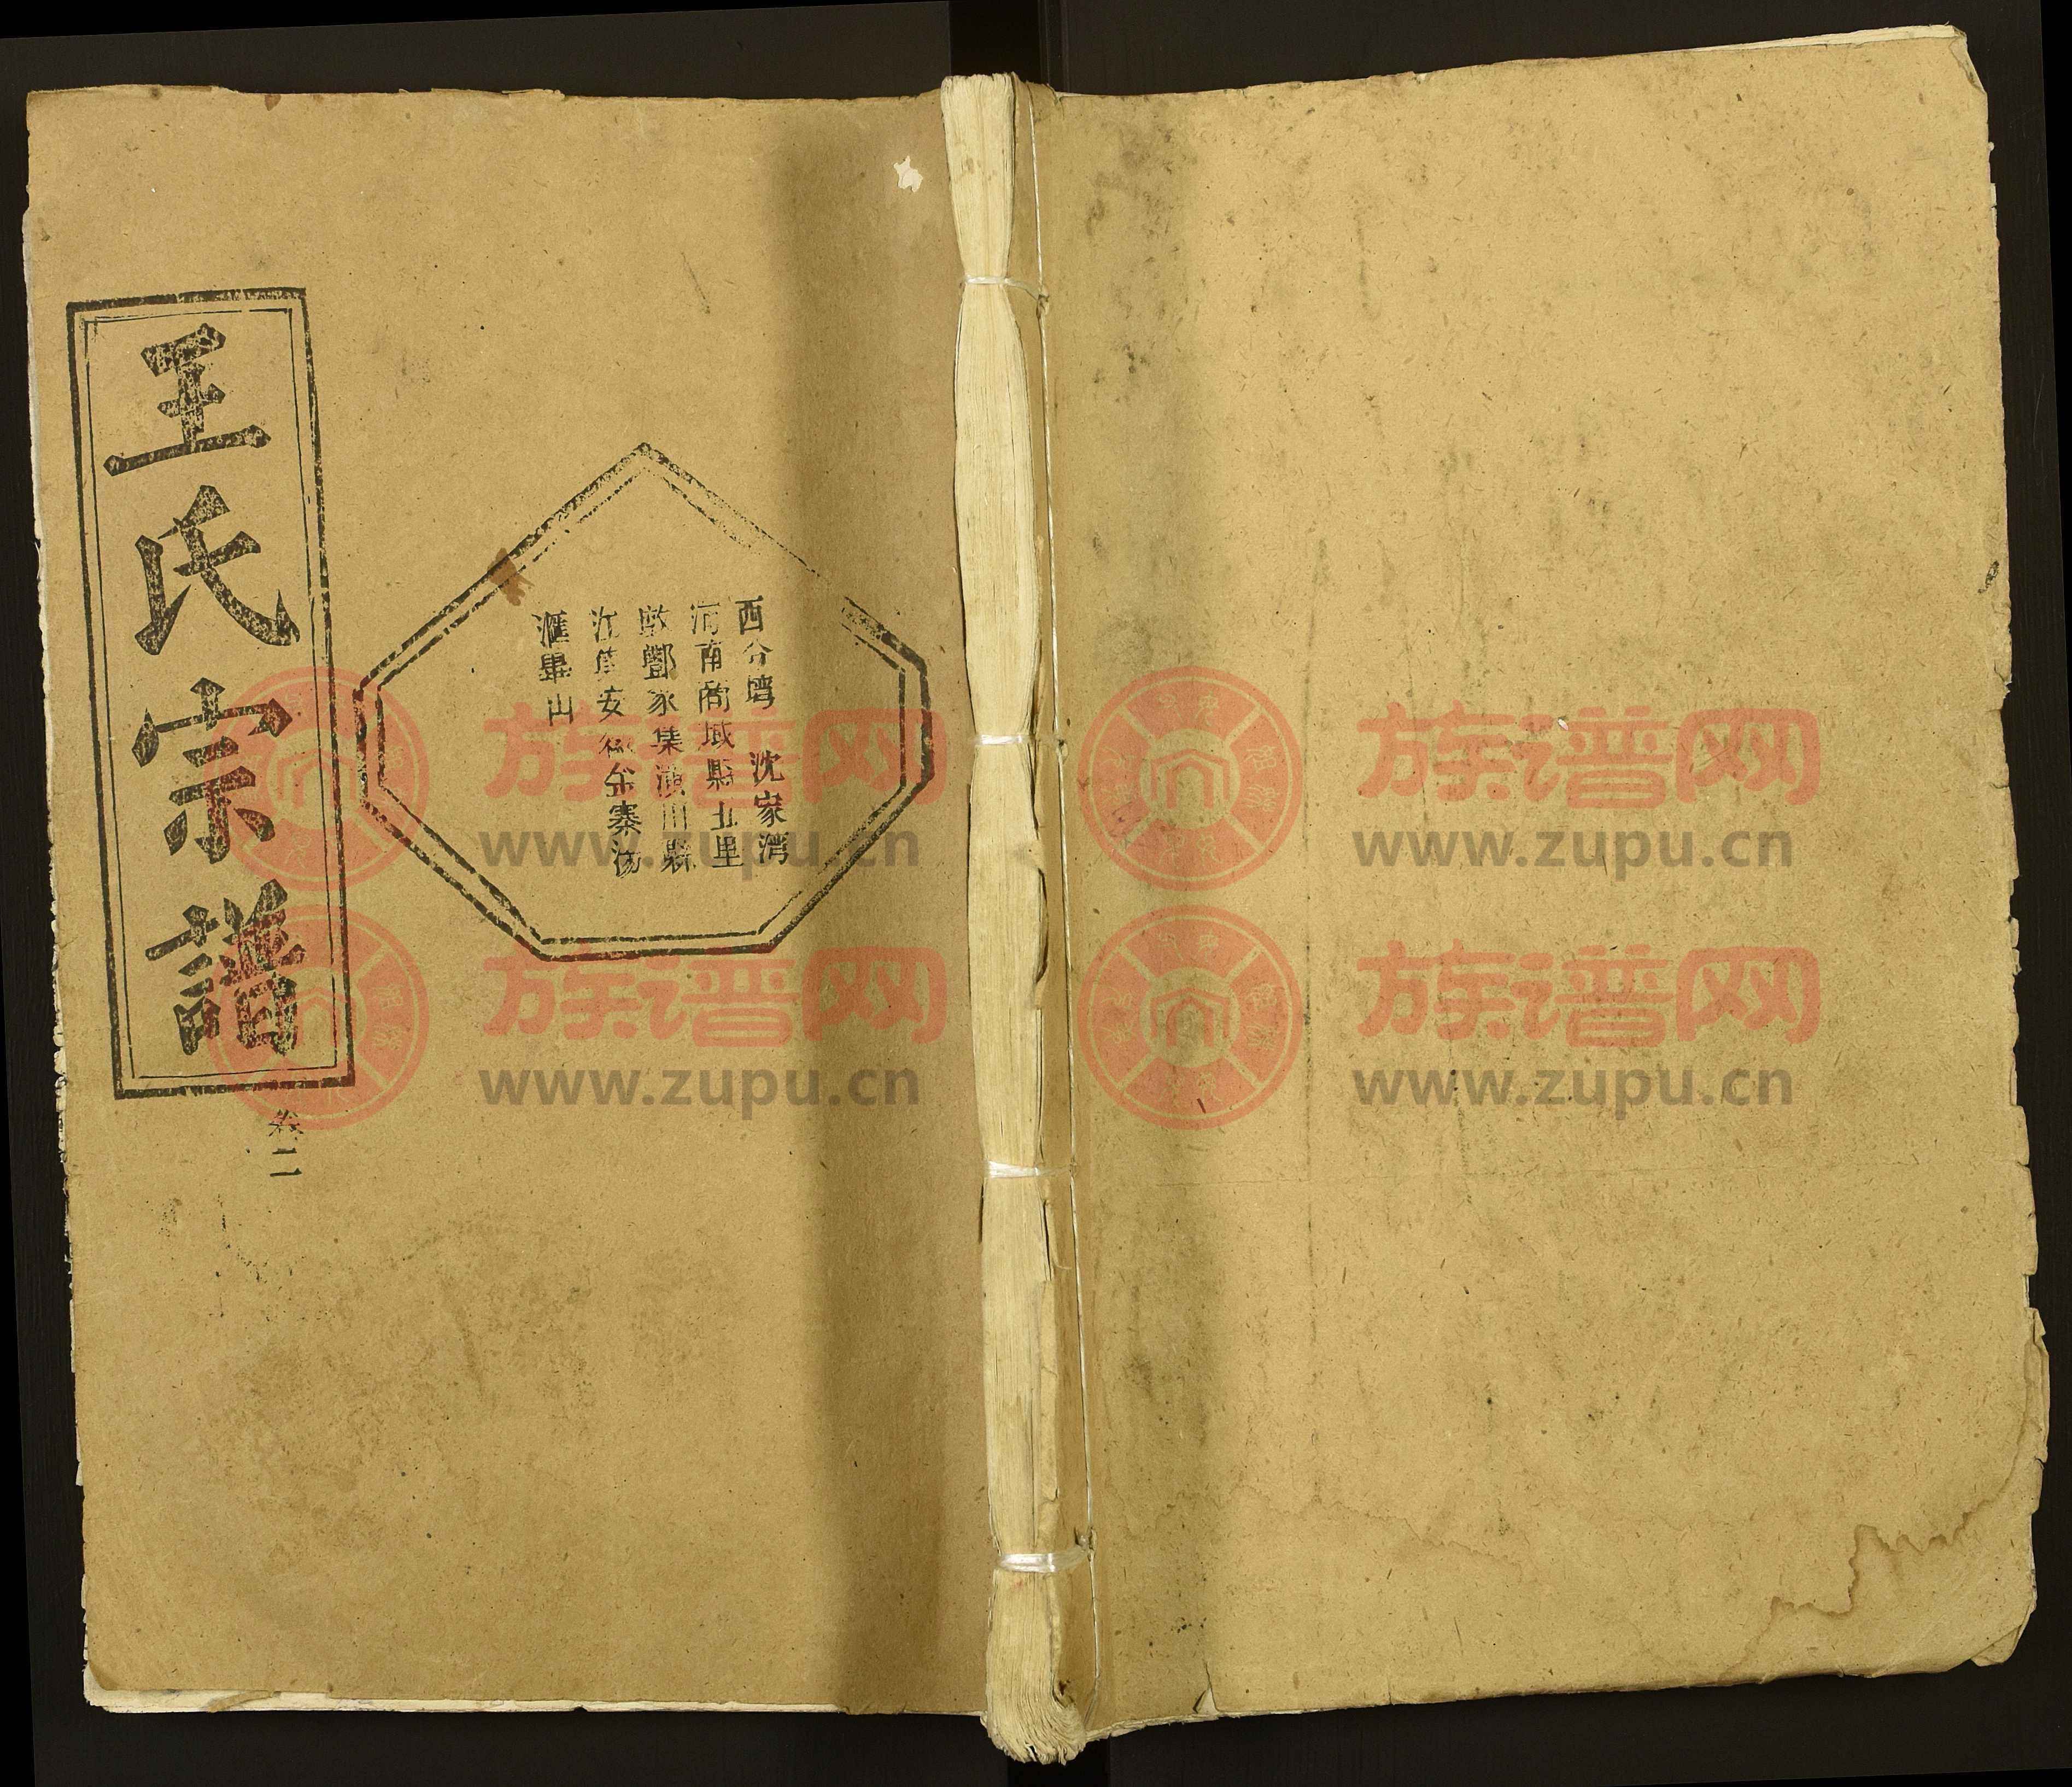 西分灣 沈家灣
河南商城縣五里
墩酆家集潢川縣
江集安徽金寨湯
滙畢山
王氏宗譜
卷二
族谱网
www.zupu.cn
族谱网
www.zupu.cn
族谱网
www.zupu.cn
族谱网
www.zupu.cn